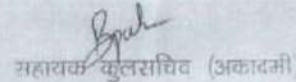 सहायक कुलसचिव (अकादमी